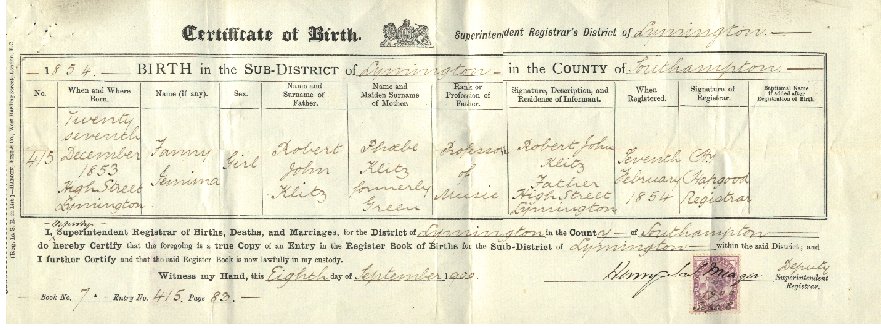 Certificate of Birth.
Superintendent Registrar's District of Lymington
1854. BIRTH in the SUB-DISTRICT of Lymington in the COUNTY of Southampton
No. When and Where Born. Name (if any). Sex. Name and Surname of Father. Name and Maiden Surname of Mother. Rank or Profession of Father. Signature, Description, and Residence of Informant. When Registered. Signature of Registrar. Baptismal Name if added after Registration of Birth.
415
Twenty
seventh
December
1853
High Street
Lymington
Fanny
Jemima
Girl
Robert
John
Klitz
Phœbe
Klitz
formerly
Green
Professor
of
Music
Robert John
Klitz
Father
High Street
Lymington
Seventh
February
1854
Hapgood
Registrar
Deputy
I, Superintendent Registrar of Births, Deaths, and Marriages, for the District of Lymington in the County of Southampton
do hereby Certify that the foregoing is a true Copy of an Entry in the Register Book of Births for the Sub-District of Lymington within the said District; and
I further Certify and that the said Register Book is now lawfully in my custody.
Witness my Hand, this Eighth day of September
Henry
Deputy
Superintendent
Registrar.
Book No. 7. Entry No. 415. Page 83.